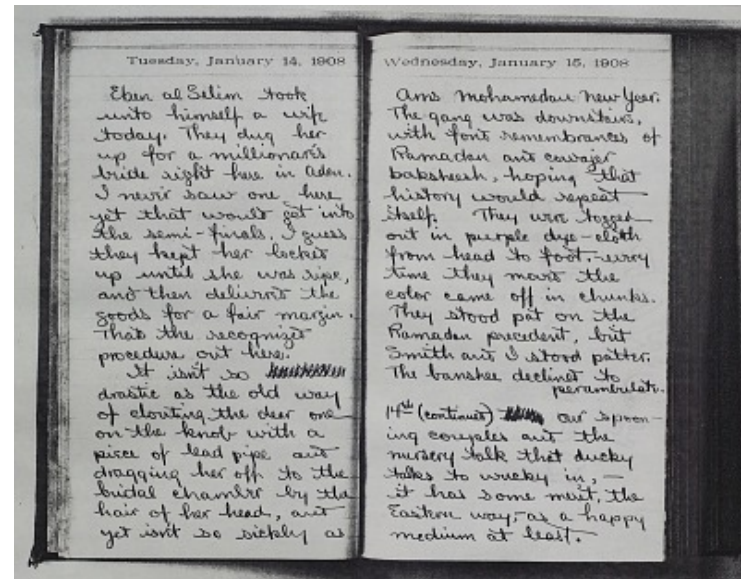 Tuesday, January 14, 1908
Eben al Selim took
unto himself a wife
today. They dug her
up for a millionare's
bride right here in Aden.
I never saw one here
yet that would get into
the semi-finals. I guess
they kept her locked
up until she was ripe,
and then delivered the
goods for a fair margin.
Thats the recognized
procedure out here.
It isn't so
drastic as the old way
of clouting the dear one
on the knob with a
piece of lead pipe and
dragging her off to the
bridal chamber by the
hair of her head, and
yet isn't so sickly as
Wednesday, January 15, 1908
Ams Mohamedan New Year.
The gang was downstairs,
with fond remembrances of
Ramadan and
baksheesh, hoping that
history would repeat
itself. They were togged
out in purple dye-cloth
from head to foot,-every
time they moved the
color came off in chunks.
They stood pat on the
Ramadan precedent, but
Smith and I stood patter.
The banshee declined to
perambulate.
14th (continued) our spoon-
ing couples and the
nursery talk that ducky
talks to wucky in, -
it has some merit, the
Eastern way,-as a happy
medium at least.